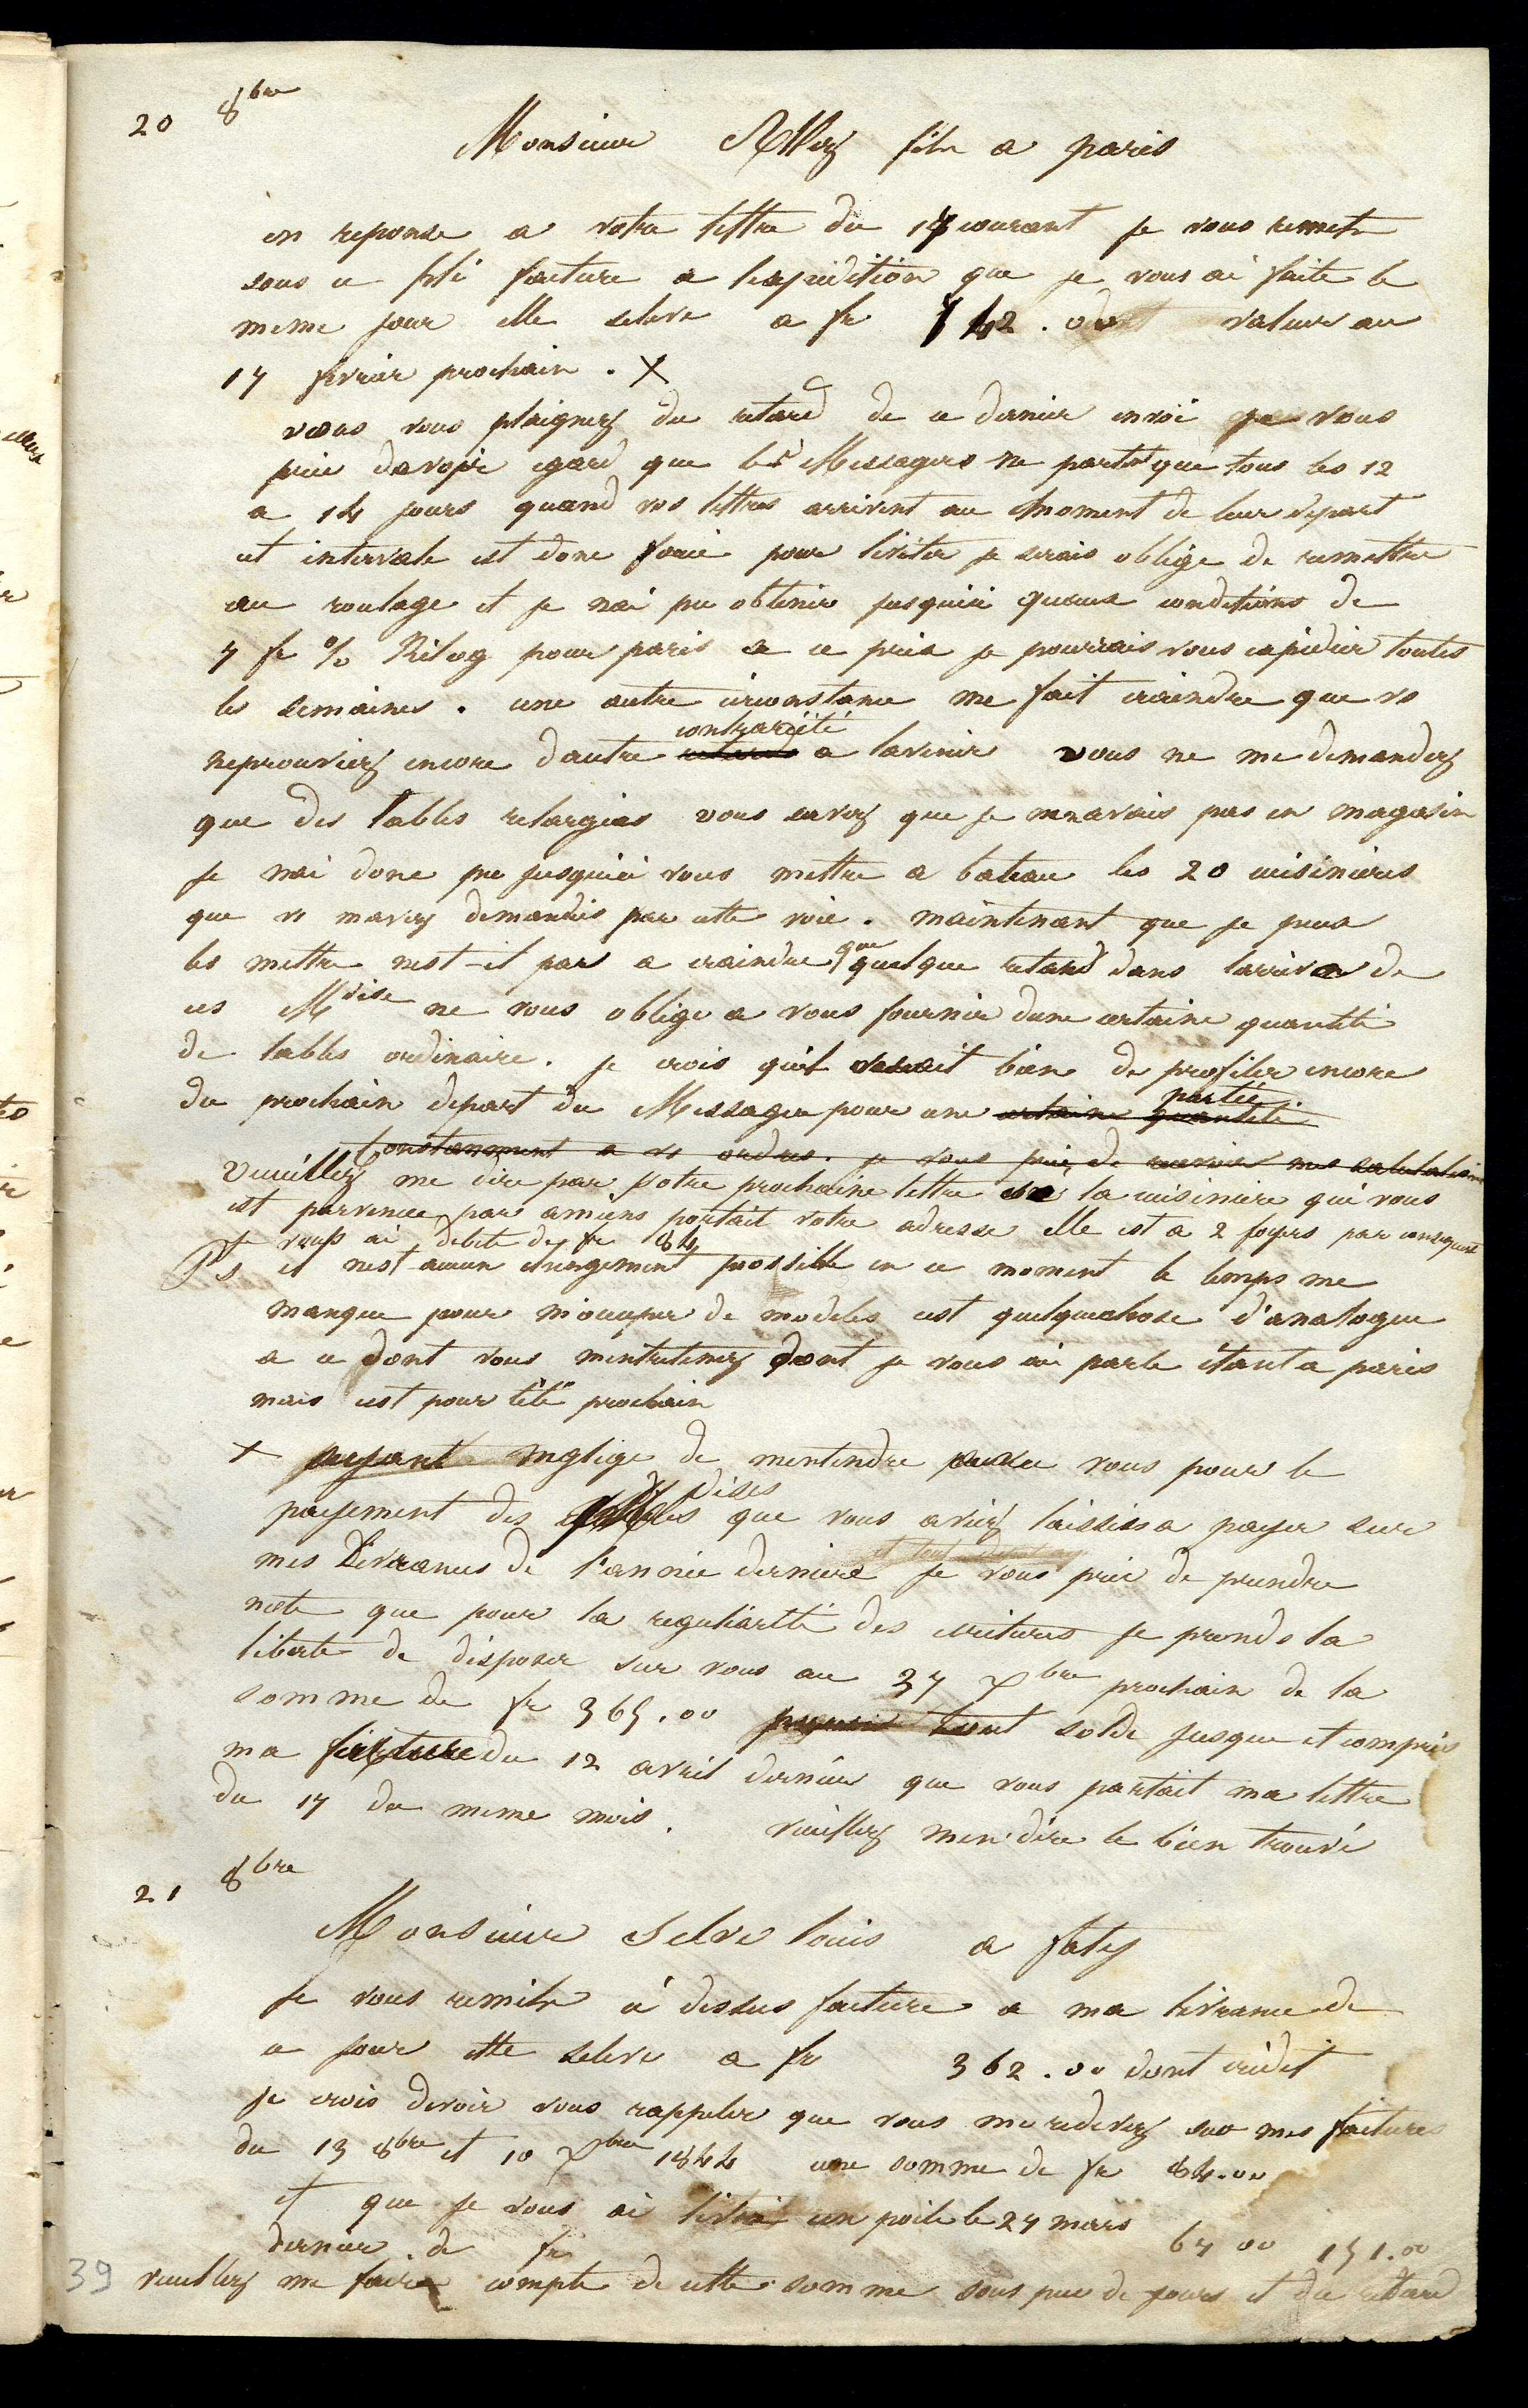 20 8bre
Monsieur Allez fils a paris
en reponse a votre lettre du 17 courant je vous remets
sous ce pli facture a lexpedition que je vous ai faite le
meme jour elle seleve a fr 742.00 valeur au
17 fevrier prochain . X
vous vous plaignez du retard de ce dernier envoi je vous
prie davoir egard que les Messagers ne partent que tous les 12
a 14 jours quand vos lettres arrivent au moment de leur depart
cet intervale est donc forcé pour leviter je serais obligé de remettre
au roulage et je nai pu obtenir jusquici quaux conditions de
7 fr % Kilog pour paris a ce prix je pourrais vous expedier toutes
les semaines . une autre circonstance me fait craindre que vs
neprouviez encore dautre retard contrariété a lavenir vous ne me demandez
que des tables relargies vous savez que je nen avais pas en magasin
je nai donc pu jusquici vous mettre a bateau les 20 cuisinieres
que vs mavez demandés par cette voie . maintenant que je peux
les mettre nest-il pas a craindre que quelque retard dans larrivée de
ces Mdise ne vous oblige a vous fournir dune certaine quantité
de tables ordinaire . je crois quil serait bien de profiter encore
du prochain depart du Messager pour une certaine quantité partie
Constamment a vs ordres . je vous prie de recevoir mes salutations
Veuillez me dire par votre prochaine lettre si la cuisiniere qui vous
est parvenue par amiens portait votre adresse elle est a 2 foyers par consequent
je vous ai debité de fr 84
Ps il nest aucun changement possible en ce moment le temps me
manque pour moccuper de modeles cest quelquechose d'analogue
a ce dont vous mentretenez dont je vous ai parlé étant a paris
mais cest pour lété prochain
+ ayant negligé de mentendre avec vous pour le
payement des Mdises que vous aviez laissés a payer sur
mes Livrances de l'année derniere je vous prie de prendre
note que pour la regularité des ecritures je prends la
liberté de disposer sur vous au 31 Xbre prochain de la
somme de fr 365.00 pour solde jusque et compris
ma facture du 12 avril dernier que vous portait ma lettre
du 17 du meme mois . veuillez men dire le bien trouvé
21 8bre
Monsieur Selve louis a faty
je vous remets ci dessus facture a ma livrance de
ce jour elle seleve a fr 362.00 dont crédit
je crois devoir vous rappeler que vous me redevez sur mes factures
du 13 8bre et 10 Xbre 1844 une somme de fr 84.00
et que je vous ai livré un poele le 27 mars
dernier de fr 67 00 151.00
39 veuillez me faire compte de cette somme sous peu de jours et du retard